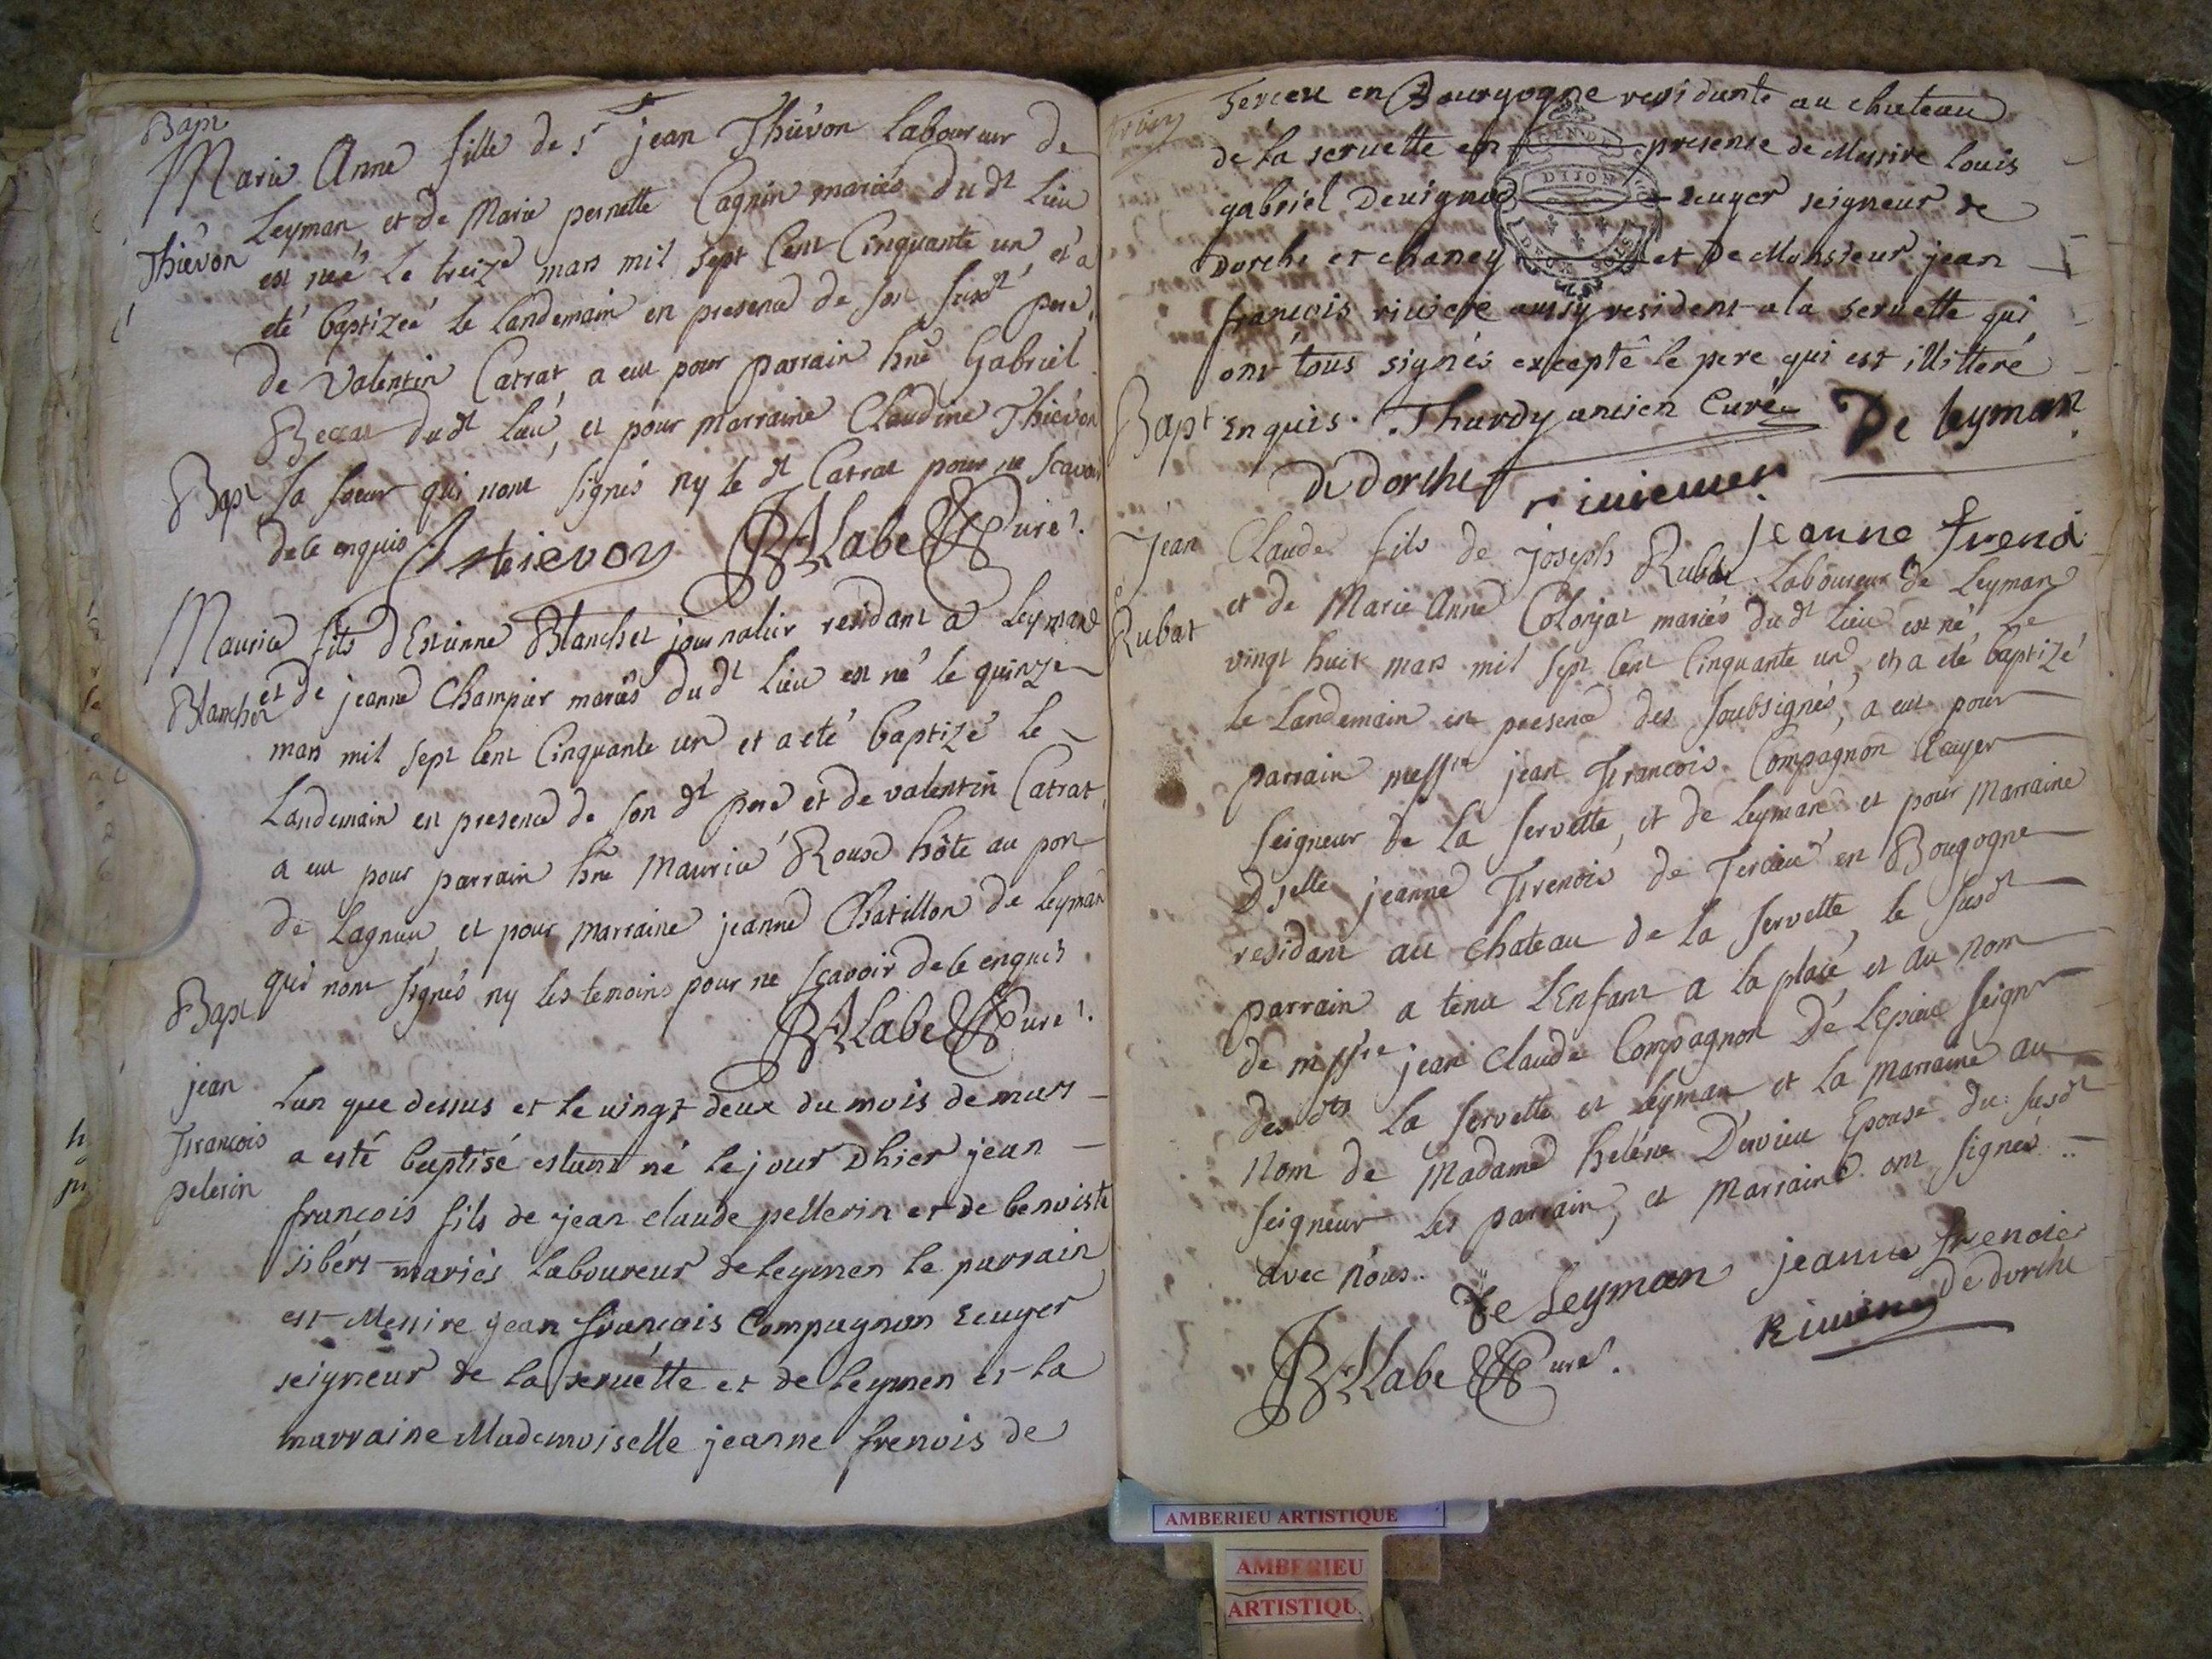 Bapt
Marie Anne fille de Sr jean Thiévon Laboureur de
Leyman et de Marie pernette Cagnin mariés du dt Lieu
Thiévon
est née Le treize mars mil sept Cent Cinquante un et a
eté baptizée le Landemain en presence de son susdt pere,
de Valentin Catrat, a eut pour parrain hnê Gabriel
Beccat du dt Lieu, et pour Marraine Claudine Thiévon
Bapt
sa soeur qui nont signés ny le dt Catrat pour ne scavoir
de le enquis. J thievon Labe Curé.
Maurice fils dEstienne Blanchet journalier residant a Leyman
Blanchet
et de jeanne Champier mariés du dt Lieu est né le quinze
mars mil sept Cent Cinquante un et a eté baptizé le
Landemain en presence de son dt pere et de valentin Catrat,
a eut pour parrain hnê Maurice Rousd hôte au port
de Lagnieu, et pour Marraine jeanne Chatillon de Leyman
qui nont signés ny les temoins pour ne scavoir de le enquis.
Bapt
Labe Curé.
jean
François
pelerin
Lan que dessus et le vingt deux du mois de mars
a esté baptisé estant né le jour Dhier jean
francois fils de jean claude pellerin et de benoiste
sibért mariés Laboureur de Leymen le parrain
est Messire jean francois Compagnon Ecuyer
seigneur de la seruétte et de Leymen et la
marraine Mademoiselle jeanne frenois de
Terceu en Bourgogne residante au chateau
de la seruette en presense de Messire Louis
GEN DE
DIJON
DEUX SOLS
gabriel Deuignod Ecuyer seigneur de
Dorche et chaney et De Monsieur jean
francois riuiere aussy resident a la seruette qui
ont tous signés excepté le pere qui est illitteré
Bapt
Enquis. Thurdy ancien Curé De leyman
De dorche riuierre
jeanne frenoi
Jean
Rubat
Claude fils de Joseph Rubat Laboureur de Leyman
et de Marie Anne Colonjat mariés du dt Lieu est né Le
vingt huit mars mil sept Cent Cinquante un, et a eté baptizé
le Landemain en presence des soubsignés, a eut pour
parrain messire jean François Compagnon Ecuyer
Seigneur de La Servette, et de Leyman et pour Marraine
Dselle jeanne Frenois de Terceu en Bougogne
residant au Chateau de la Servette, le susdt
parrain a tenu L'Enfant a la place et au nom
de messire jean Claude Compagnon De LEpine Seignr
des dts La Servette et Leyman et La Marraine au
Nom de Madame heléne Dervieu Epouse du susdt
Seigneur Les parrain, et Marraine ont signés
avec Nous. De Leyman jeanne frenois
Riuiere de dorche
Labe Curé.
AMBERIEU ARTISTIQUE
AMBERIEU
ARTISTIQU